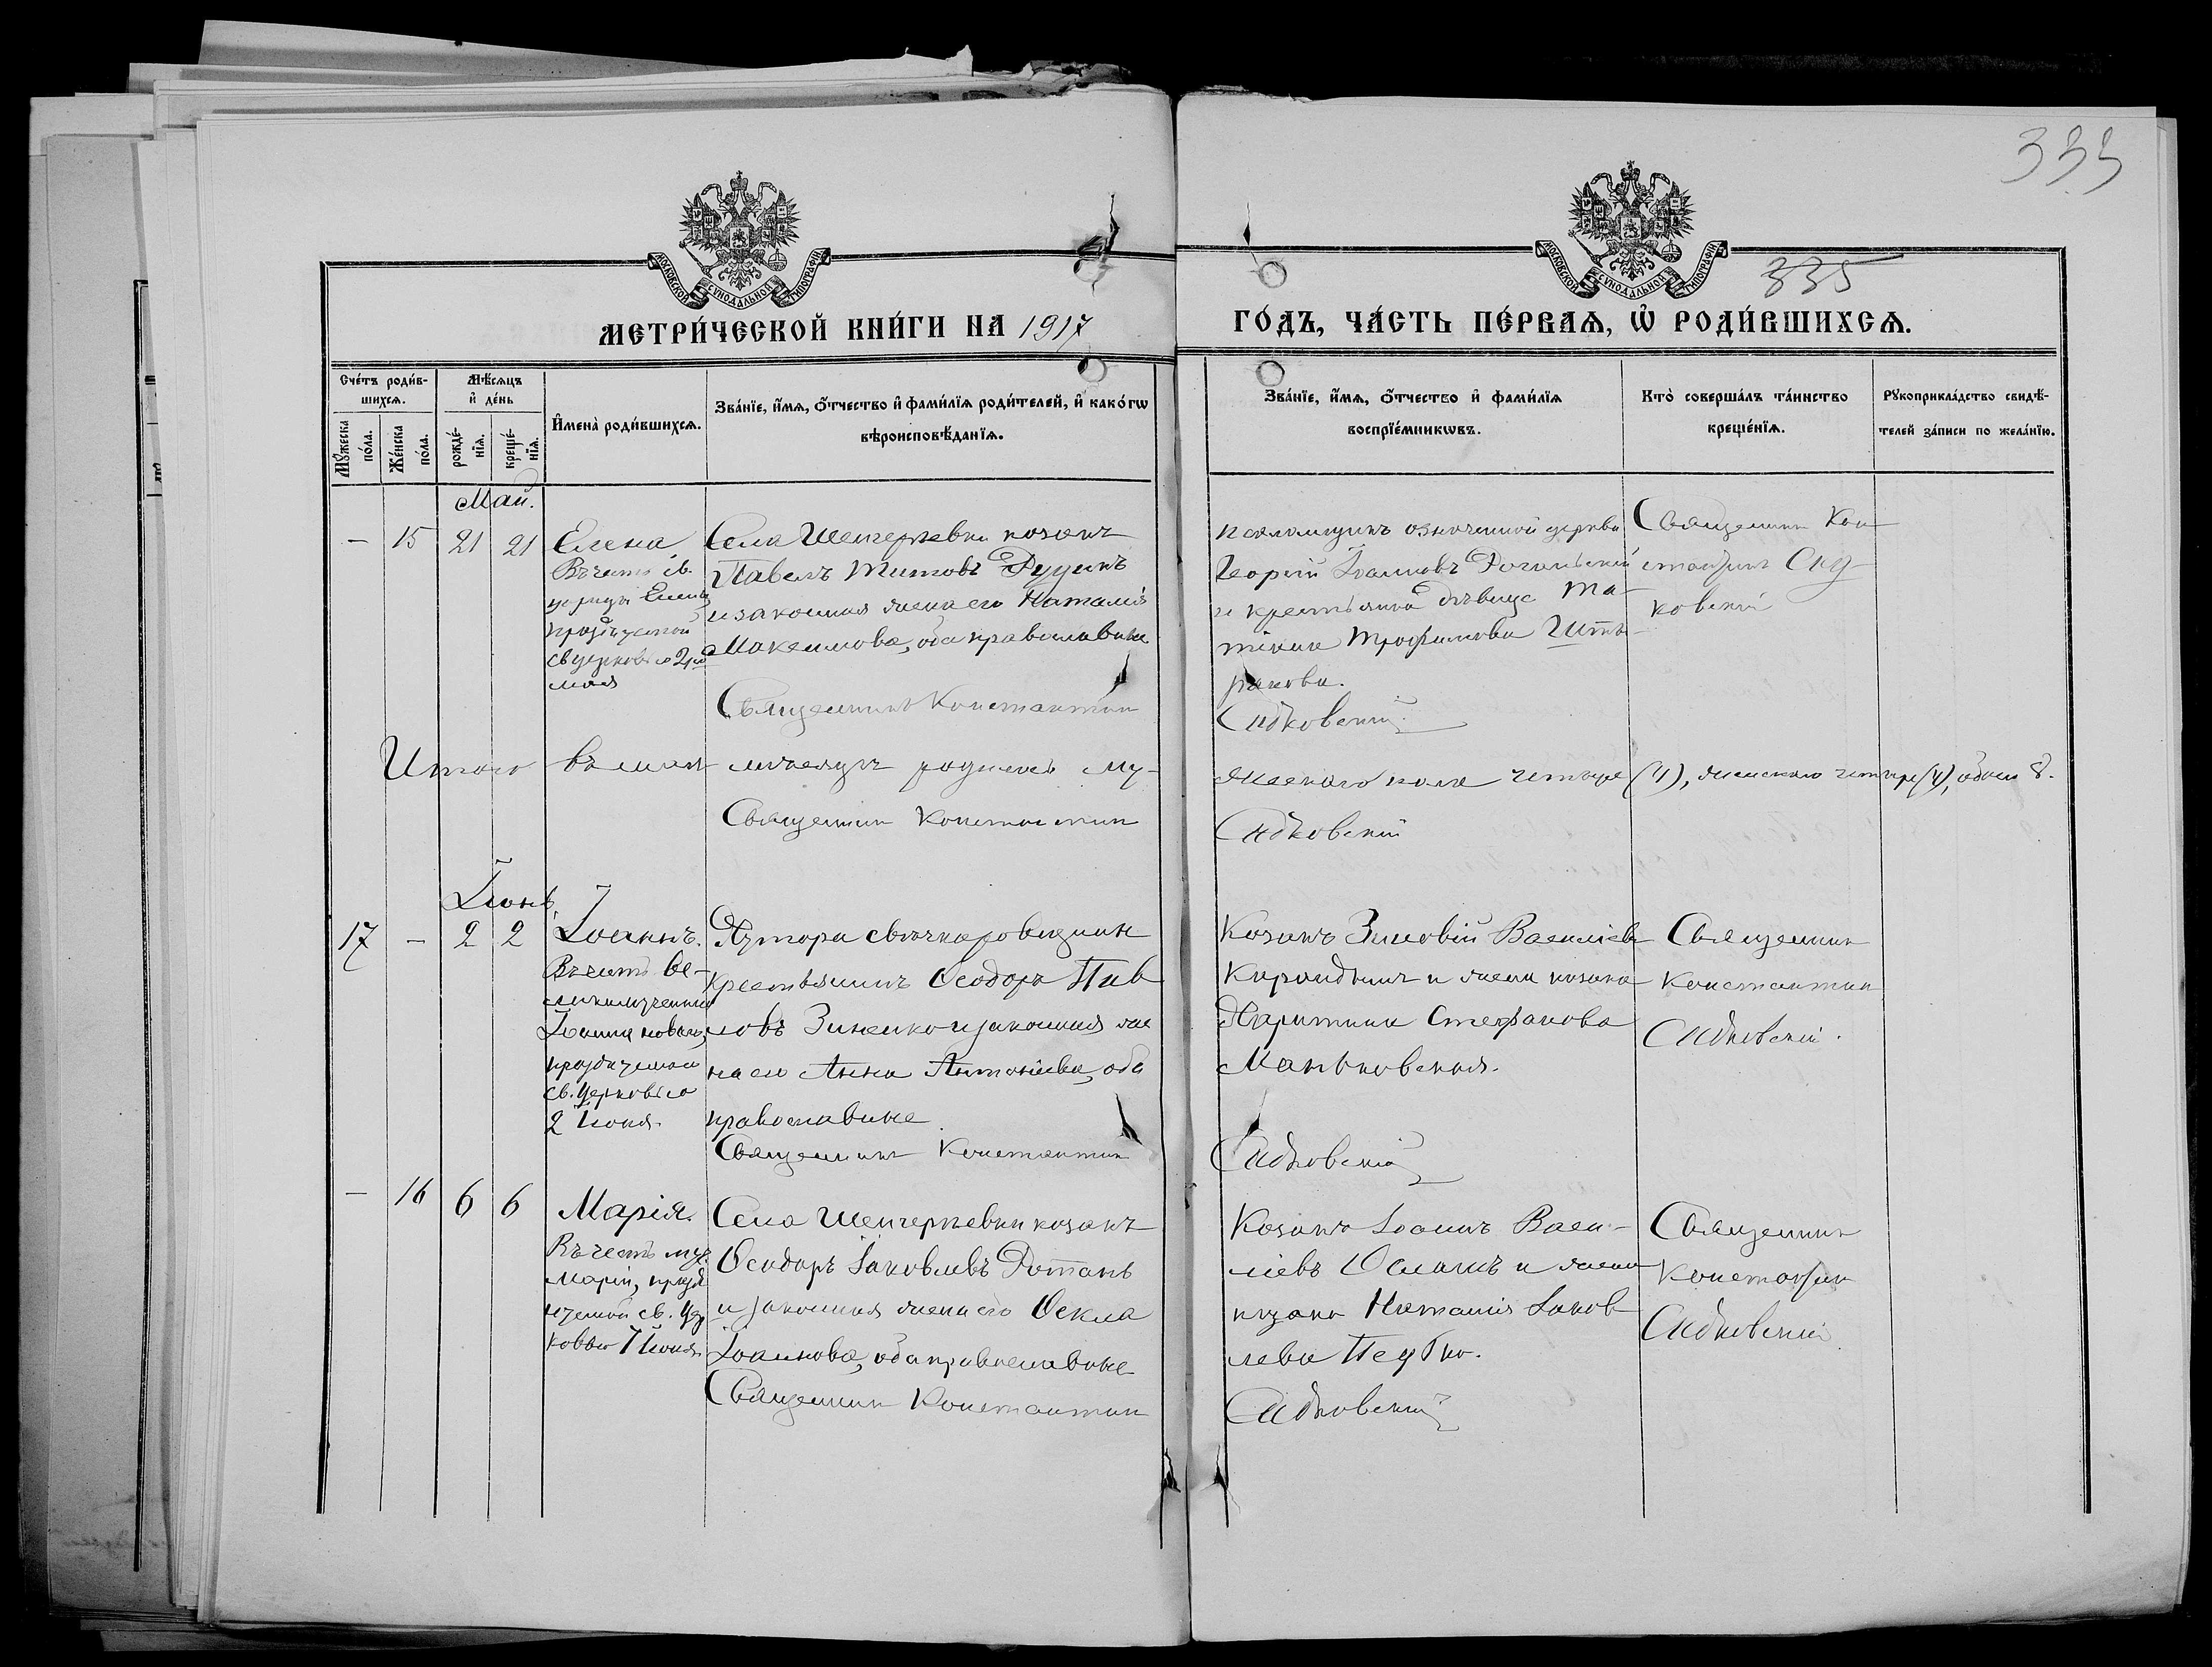 333
МОСКОВСКОЙ СУНОДАЛЬНОЙ ТИПОГРАФІИ
МОСКОВСКОЙ СУНОДАЛЬНОЙ ТИПОГРАФІИ
335
МЕТРИ́ЧЕСКОЙ КНИ́ГИ НА 1917
ГО́ДЪ, ЧА́СТЬ ПЕ́РВАѦ, Ѡ҆ РОДИ́ВШИХСѦ.
Сче́тъ роди́в-
шихсѧ.
Мꙋ́жеска
по́ла.
Же́нска
по́ла.
Мѣ́сѧцъ
и҆ де́нь
рожде́-
нїѧ.
креще́-
нїѧ.
И҆мена̀ роди́вшихсѧ.
Зва́нїе, и҆́мѧ, ѻ҆́тчество и҆ фами́лїѧ роди́телей, и҆ како́гѡ
вѣроисповѣ́данїѧ.
Зва́нїе, и҆́мѧ, ѻ҆́тчество и҆ фами́лїѧ
воспрїе́мникѡвъ.
Кто̀ соверша́лъ та́инство
креще́нїѧ.
Рꙋкоприкла́дство свидѣ́-
телей за́писи по жела́нїю.
Май.
— 15 21 21
Елена
Въ честь св.
царицы Елены
празднуемой
св церковію 21го
мая
Села козакъ
Павелъ Титовъ
и законная жена его Наталія
Максимова, оба православные
Священникъ Константин
псаломщикъ означенной церкви
Георгій Іоанновъ
и крестьянка дѣвица Та-
тіана Трофимова
Садковскій
Священник Кон
стантин Сад
ковскій
Итого въ маѣ мѣсяцѣ родилось му-
жескаго пола четыре (4), женскаго четыре (4), обоего 8.
Священник Константин
Садковскій
Іюнь
17 — 2 2
Іоаннъ.
Въ честь ве-
ликомученика
Іоанна новаго,
празднуемаго
св. Церковію
2 Іюня.
Хутора
крестьянинъ Ѳеодоръ Пав
ловъ Зиненко и законная же
на его Анна Антоніева, оба
православные
Священникъ Константин
Козакъ Зиновій Василіев
и жена козака
Харитина Стефанова
Маньковская.
Садковскій
Священник
Константин
Садковскій.
— 16 6 6
Марія.
Въ честь муч.
Маріи, празд
нуемой св. Цер
ковью 7 Іюня.
Села козакъ
Ѳеодоръ Іаковлевъ
и законная жена его Ѳекла
Іоаннова, оба православные
Священник Константин
Козакъ Іоаннъ Васи-
ліевъ и жена
козака Наталія Іаков
лева
Садковскій
Священник
Константин
Садковскій